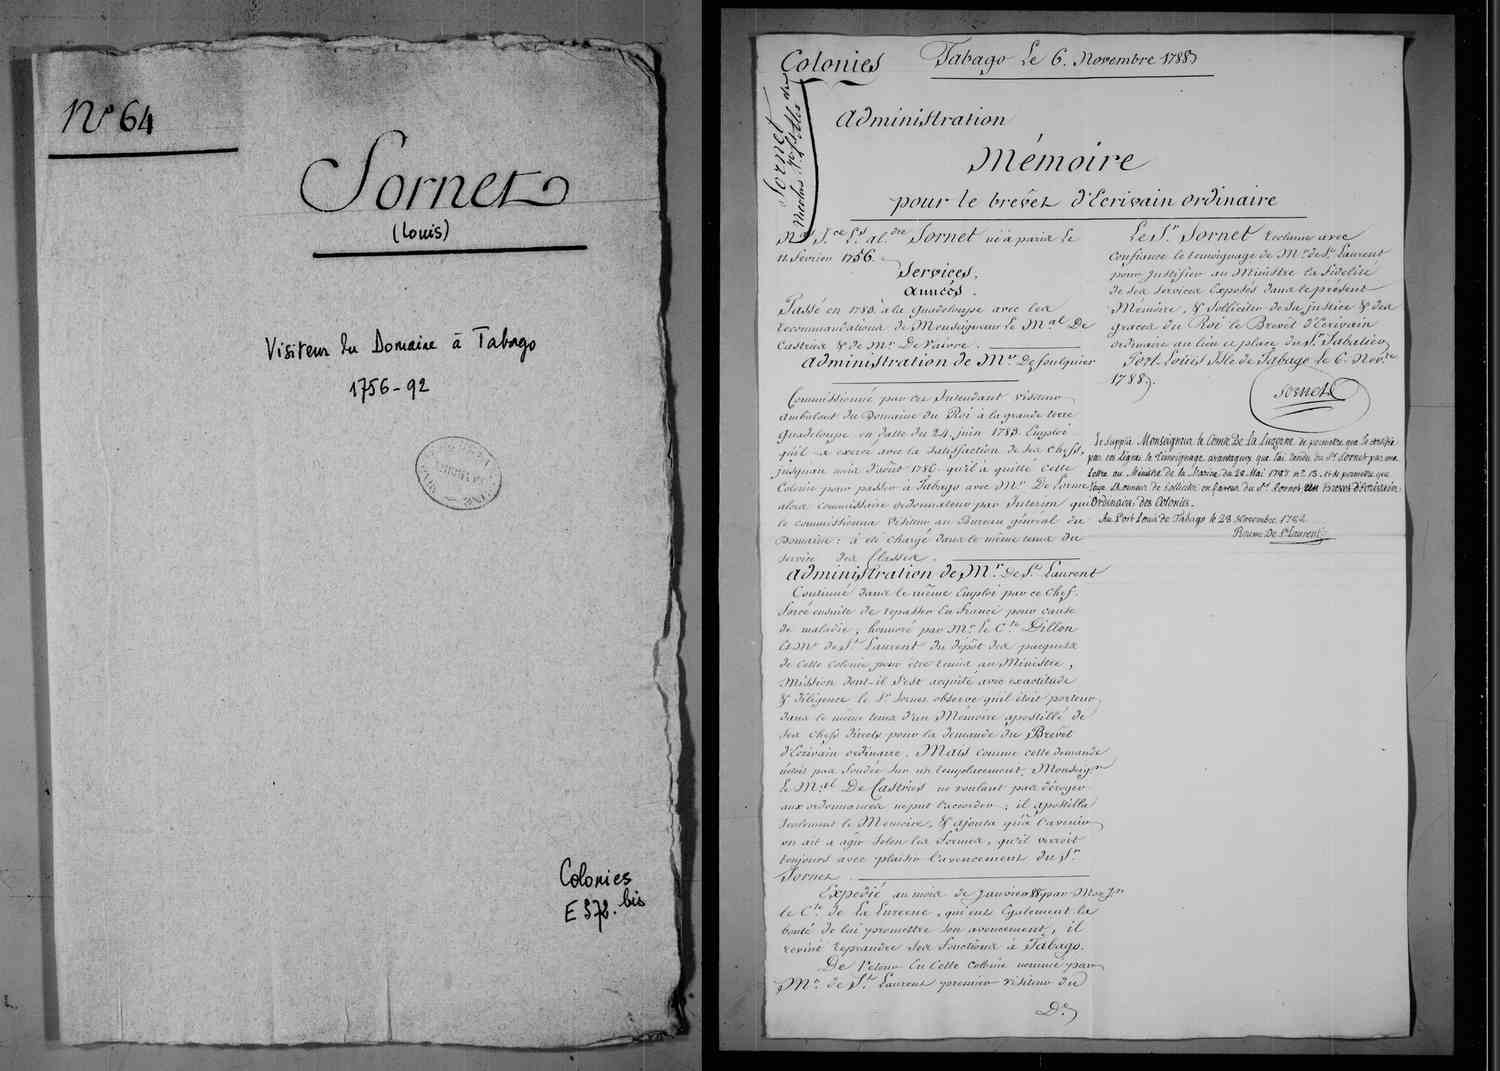 N° 64
Sornet
(Louis)
Visiteur du Domaine à Tabago
1756-92
Colonies
E 372.bis
Colonies
Tabago Le 6. Novembre 1788
Sornet
Nicolas
Administration
Mémoire
pour le brevet d'Ecrivain ordinaire
Sornet né à paris le
11 février 1756.
Services,
Années.
Passé en 1783 à la Guadeloupe avec les
recommandations de Monseigneur le M.al De
Castries & de Mr. De Vaivre.
Administration de Mr. De foulquier
Commissionné par cet Intendant visiteur
ambulant du Domaine du Roi à la grande terre
Guadeloupe en datte du 24. juin 1783. Emploi
qu'il a exercé avec la satisfaction de ses chefs,
jusques au mois d'août 1786. qu'il a quitté cette
Colonie pour passer à Tabago avec Mr.
alors Commissaire ordonnateur par Interim qui
le commissionna visiteur au Bureau général du
Domaine : a été chargé dans le même tems du
service des Classes.
Administration de Mr. De St. Laurent
Continué dans le même Emploi par ce chef.
forcé ensuite de repasser En France pour cause
de maladie, honoré par Mr. le Cte. Dillon
et Mr. de St. Laurent du dépôt des paquets
de cette colonie pour être remis au Ministre,
Mission dont-il s'est acquité avec exactitude
& diligence le Sr. Sornet observe qu'il étoit porteur
dans le même tems d'un Mémoire apostillé de
ses chefs directs pour la demande du Brevet
d'Ecrivain ordinaire. Mais comme cette demande
n'étoit pas fondée sur un remplacement, Monseigr.
le M.al De Castries ne voulant pas déroger
aux ordonnances ne put l'accorder ; il apostilla
seulement le Mémoire, & ajouta qu'à l'avenir
on ait a agir selon les formes, qu'il verroit
toujours avec plaisir l'avencement du Sr.
Sornet.
Expédié au mois de Janvier 88 par Monsgr.
le Cte. de La Luzerne, qui eut Egalement la
bonté de lui promettre son avencement, il
revint reprendre ses fonctions à Tabago.
De retour En cette Colonie nommé par
Mr. de St. Laurent premier visiteur du
De
Le Sr. Sornet reclame avec
confiance le temoignage de Mr. de St. Laurent
pour justifier au Ministre la fidelité
de ses services Exposés dans le présent
Mémoire, & solliciter de sa justice & des
graces du Roi le Brevet d'Ecrivain
ordinaire au lieu et place du Sr.
Port Louis Isle de Tabago le 6. Nov.re
1788.
Sornet
Je supplie Monseigneur le Comte De La Luzerne de permettre que je certifie
par ces lignes le temoignage avantageux que j'ai rendu du Sr. Sornet par ma
lettre au Ministre de la Marine du 28 Mai 1787 n° 13. et de permettre que
j'aye l'honneur de solliciter en faveur du Sr. Sornet un Brevet d'Ecrivain
ordinaire des Colonies.
Au Port Louis de Tabago le 28 Novembre 1788
Roume De St Laurent